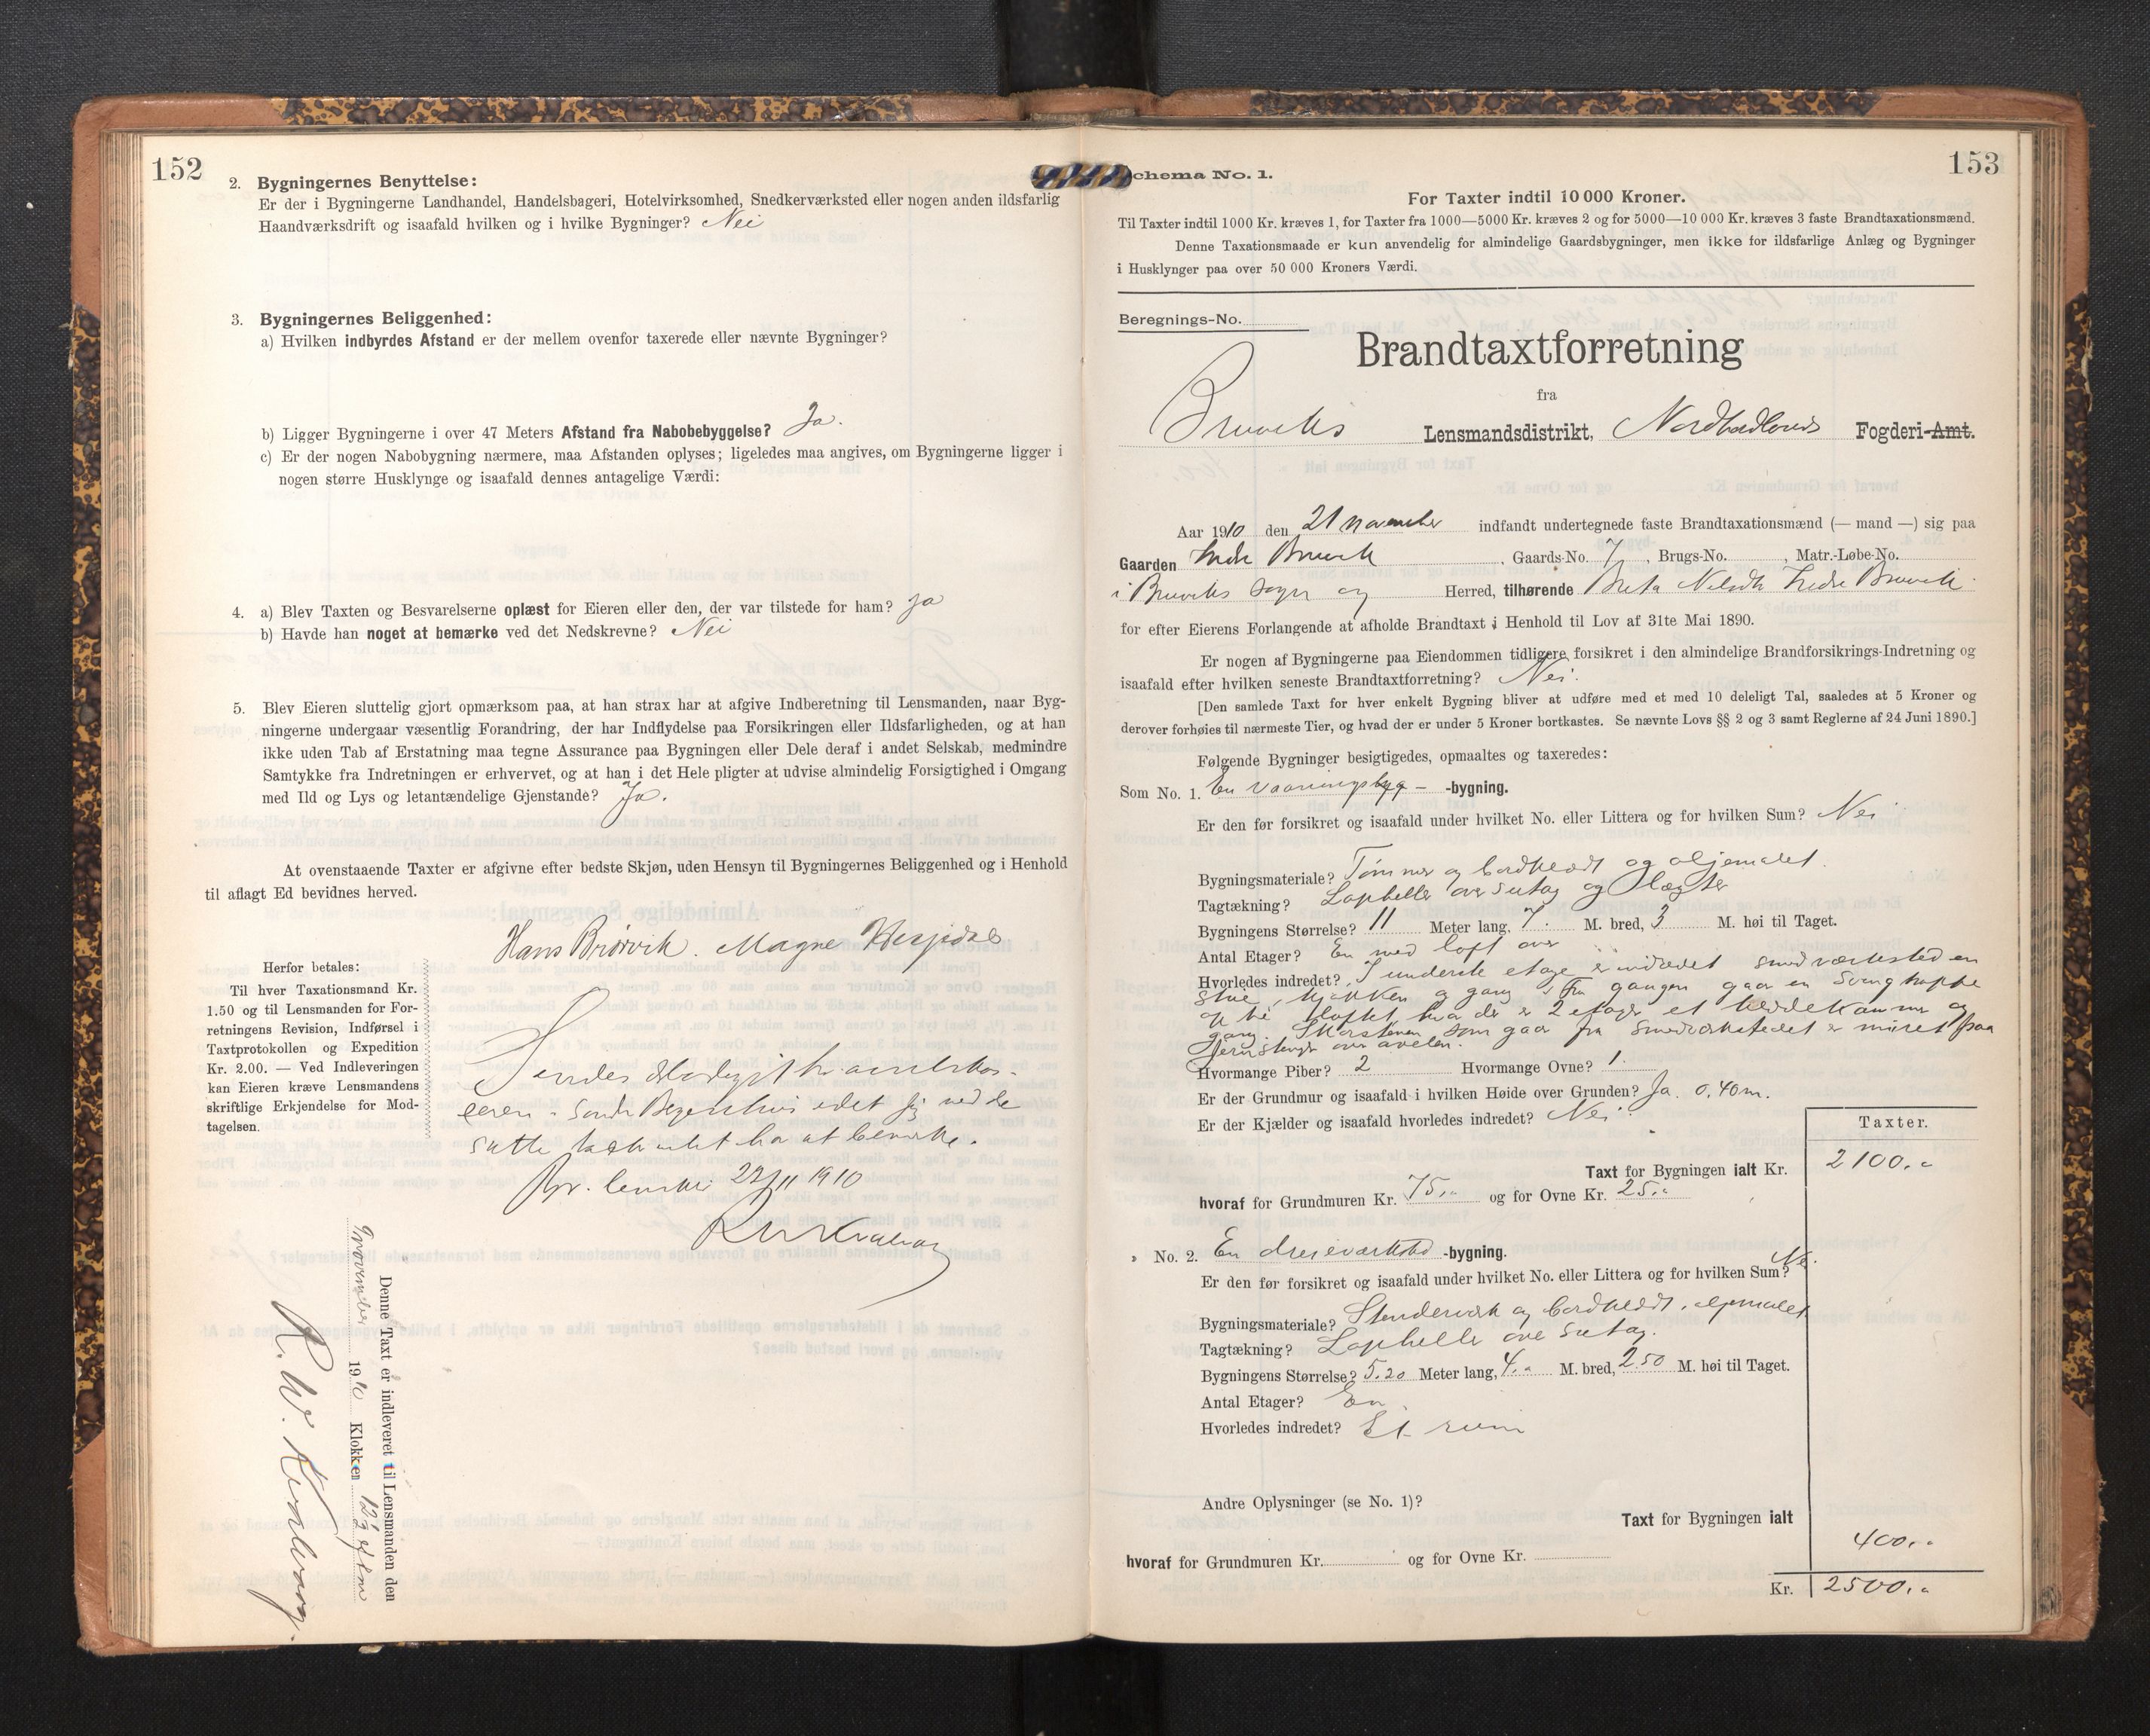 152
2. Bygningernes Benyttelse:
Er der i Bygningerne Landhandel, Handelsbageri, Hotelvirksomhed, Snedkerværksted eller nogen anden ildsfarlig
Haandværksdrift og isaafald hvilken og i hvilke Bygninger? Nei
3. Bygningernes Beliggenhed:
a) Hvilken indbyrdes Afstand er der mellem ovenfor taxerede eller nævnte Bygninger?
b) Ligger Bygningerne i over 47 Meters Afstand fra Nabobebyggelse? Ja.
c) Er der nogen Nabobygning nærmere, maa Afstanden oplyses; ligeledes maa angives, om Bygningerne ligger i
nogen større Husklynge og isaafald dennes antagelige Værdi:
4. a) Blev Taxten og Besvarelserne oplæst for Eieren eller den, der var tilstede for ham? Ja
b) Havde han noget at bemærke ved det Nedskrevne? Nei
5. Blev Eieren sluttelig gjort opmærksom paa, at han strax har at afgive Indberetning til Lensmanden, naar Byg-
ningerne undergaar væsentlig Forandring, der har Indflydelse paa Forsikringen eller Ildsfarligheden, og at han
ikke uden Tab af Erstatning maa tegne Assurance paa Bygningen eller Dele deraf i andet Selskab, medmindre
Samtykke fra Indretningen er erhvervet, og at han i det Hele pligter at udvise almindelig Forsigtighed i Omgang
med Ild og Lys og letantændelige Gjenstande? Ja.
At ovenstaaende Taxter er afgivne efter bedste Skjøn, uden Hensyn til Bygningernes Beliggenhed og i Henhold
til aflagt Ed bevidnes herved.
Hans Brørvik. Magne Hesjedal
Herfor betales:
Til hver Taxationsmand Kr.
1.50 og til Lensmanden for For-
retningens Revision, Indførsel i
Taxtprotokollen og Expedition
Kr. 2.00. — Ved Indleveringen
kan Eieren kræve Lensmandens
skriftlige Erkjendelse for Mod-
tagelsen.
Sendes
ceren i Søndre Bergenhus idet jeg ved de
satte takst intet har at bemerke.
22/11 1910
R W Kvalvaag
Denne Taxt er indleveret til Lensmanden den
november 1910 Klokken 12
R. W. Kvalvaag.
Schema No. 1.
153
For Taxter indtil 10 000 Kroner.
Til Taxter indtil 1000 Kr. kræves 1, for Taxter fra 1000—5000 Kr. kræves 2 og for 5000—10 000 Kr. kræves 3 faste Brandtaxationsmænd.
Denne Taxationsmaade er kun anvendelig for almindelige Gaardsbygninger, men ikke for ildsfarlige Anlæg og Bygninger
i Husklynger paa over 50 000 Kroners Værdi.
Beregnings-No.
Brandtaxtforretning
fra
Bruviks Lensmandsdistrikt, Nordhordlands Fogderi-Amt.
Aar 1910 den 21 november indfandt undertegnede faste Brandtaxationsmænd (— mand —) sig paa
Gaarden Indre Bruvik , Gaards-No. 7 , Brugs-No. , Matr.-Løbe-No.
i Bruviks sogn og Herred, tilhørende Brita Nilsdtr Indre Bruvik
for efter Eierens Forlangende at afholde Brandtaxt i Henhold til Lov af 31te Mai 1890.
Er nogen af Bygningerne paa Eiendommen tidligere forsikret i den almindelige Brandforsikrings-Indretning og
isaafald efter hvilken seneste Brandtaxtforretning? Nei.
[Den samlede Taxt for hver enkelt Bygning bliver at udføre med et med 10 deleligt Tal, saaledes at 5 Kroner og
derover forhøies til nærmeste Tier, og hvad der er under 5 Kroner bortkastes. Se nævnte Lovs §§ 2 og 3 samt Reglerne af 24 Juni 1890.]
Følgende Bygninger besigtigedes, opmaaltes og taxeredes:
Som No. 1. En vaaningsbyg - -bygning.
Er den før forsikret og isaafald under hvilket No. eller Littera og for hvilken Sum? Nei
Bygningsmateriale? Tømmer og bordklædt og oljemalet.
Tagtækning? Laphelle over sutag og lægter
Bygningens Størrelse? 11 Meter lang, 7. M. bred, 3 M. høi til Taget.
Antal Etager? En med loft over
Hvorledes indredet? I underste etage er indredet smedværksted en
stue, kjøkken og gang. Fra gangen gaar en svingtrappe
op til loftet, hvor der er 2 etager et klædekammer og
gang. Skorstenen som gaar fra smedværkstedet er muret paa
jernstenger over avelen.
Hvormange Piber? 2 Hvormange Ovne? 1.
Er der Grundmur og isaafald i hvilken Høide over Grunden? Ja. 0,40 m.
Er der Kjælder og isaafald hvorledes indredet? Nei.
Taxter.
Taxt for Bygningen ialt Kr. 2100,-
hvoraf for Grundmuren Kr. 75,- og for Ovne Kr. 25,-
" No. 2. En dreieværksted -bygning.
Er den før forsikret og isaafald under hvilket No. eller Littera og for hvilken Sum? Nei.
Bygningsmateriale? Stenderværk og bordklædt, oljemalet
Tagtækning? Laphelle over sutag.
Bygningens Størrelse? 5.20 Meter lang, 4,- M. bred, 2.50 M. høi til Taget.
Antal Etager? En.
Hvorledes indredet? Et rum
Andre Oplysninger (se No. 1)?
Taxt for Bygningen ialt 400,-
hvoraf for Grundmuren Kr. og for Ovne Kr.
Kr. 2500,-